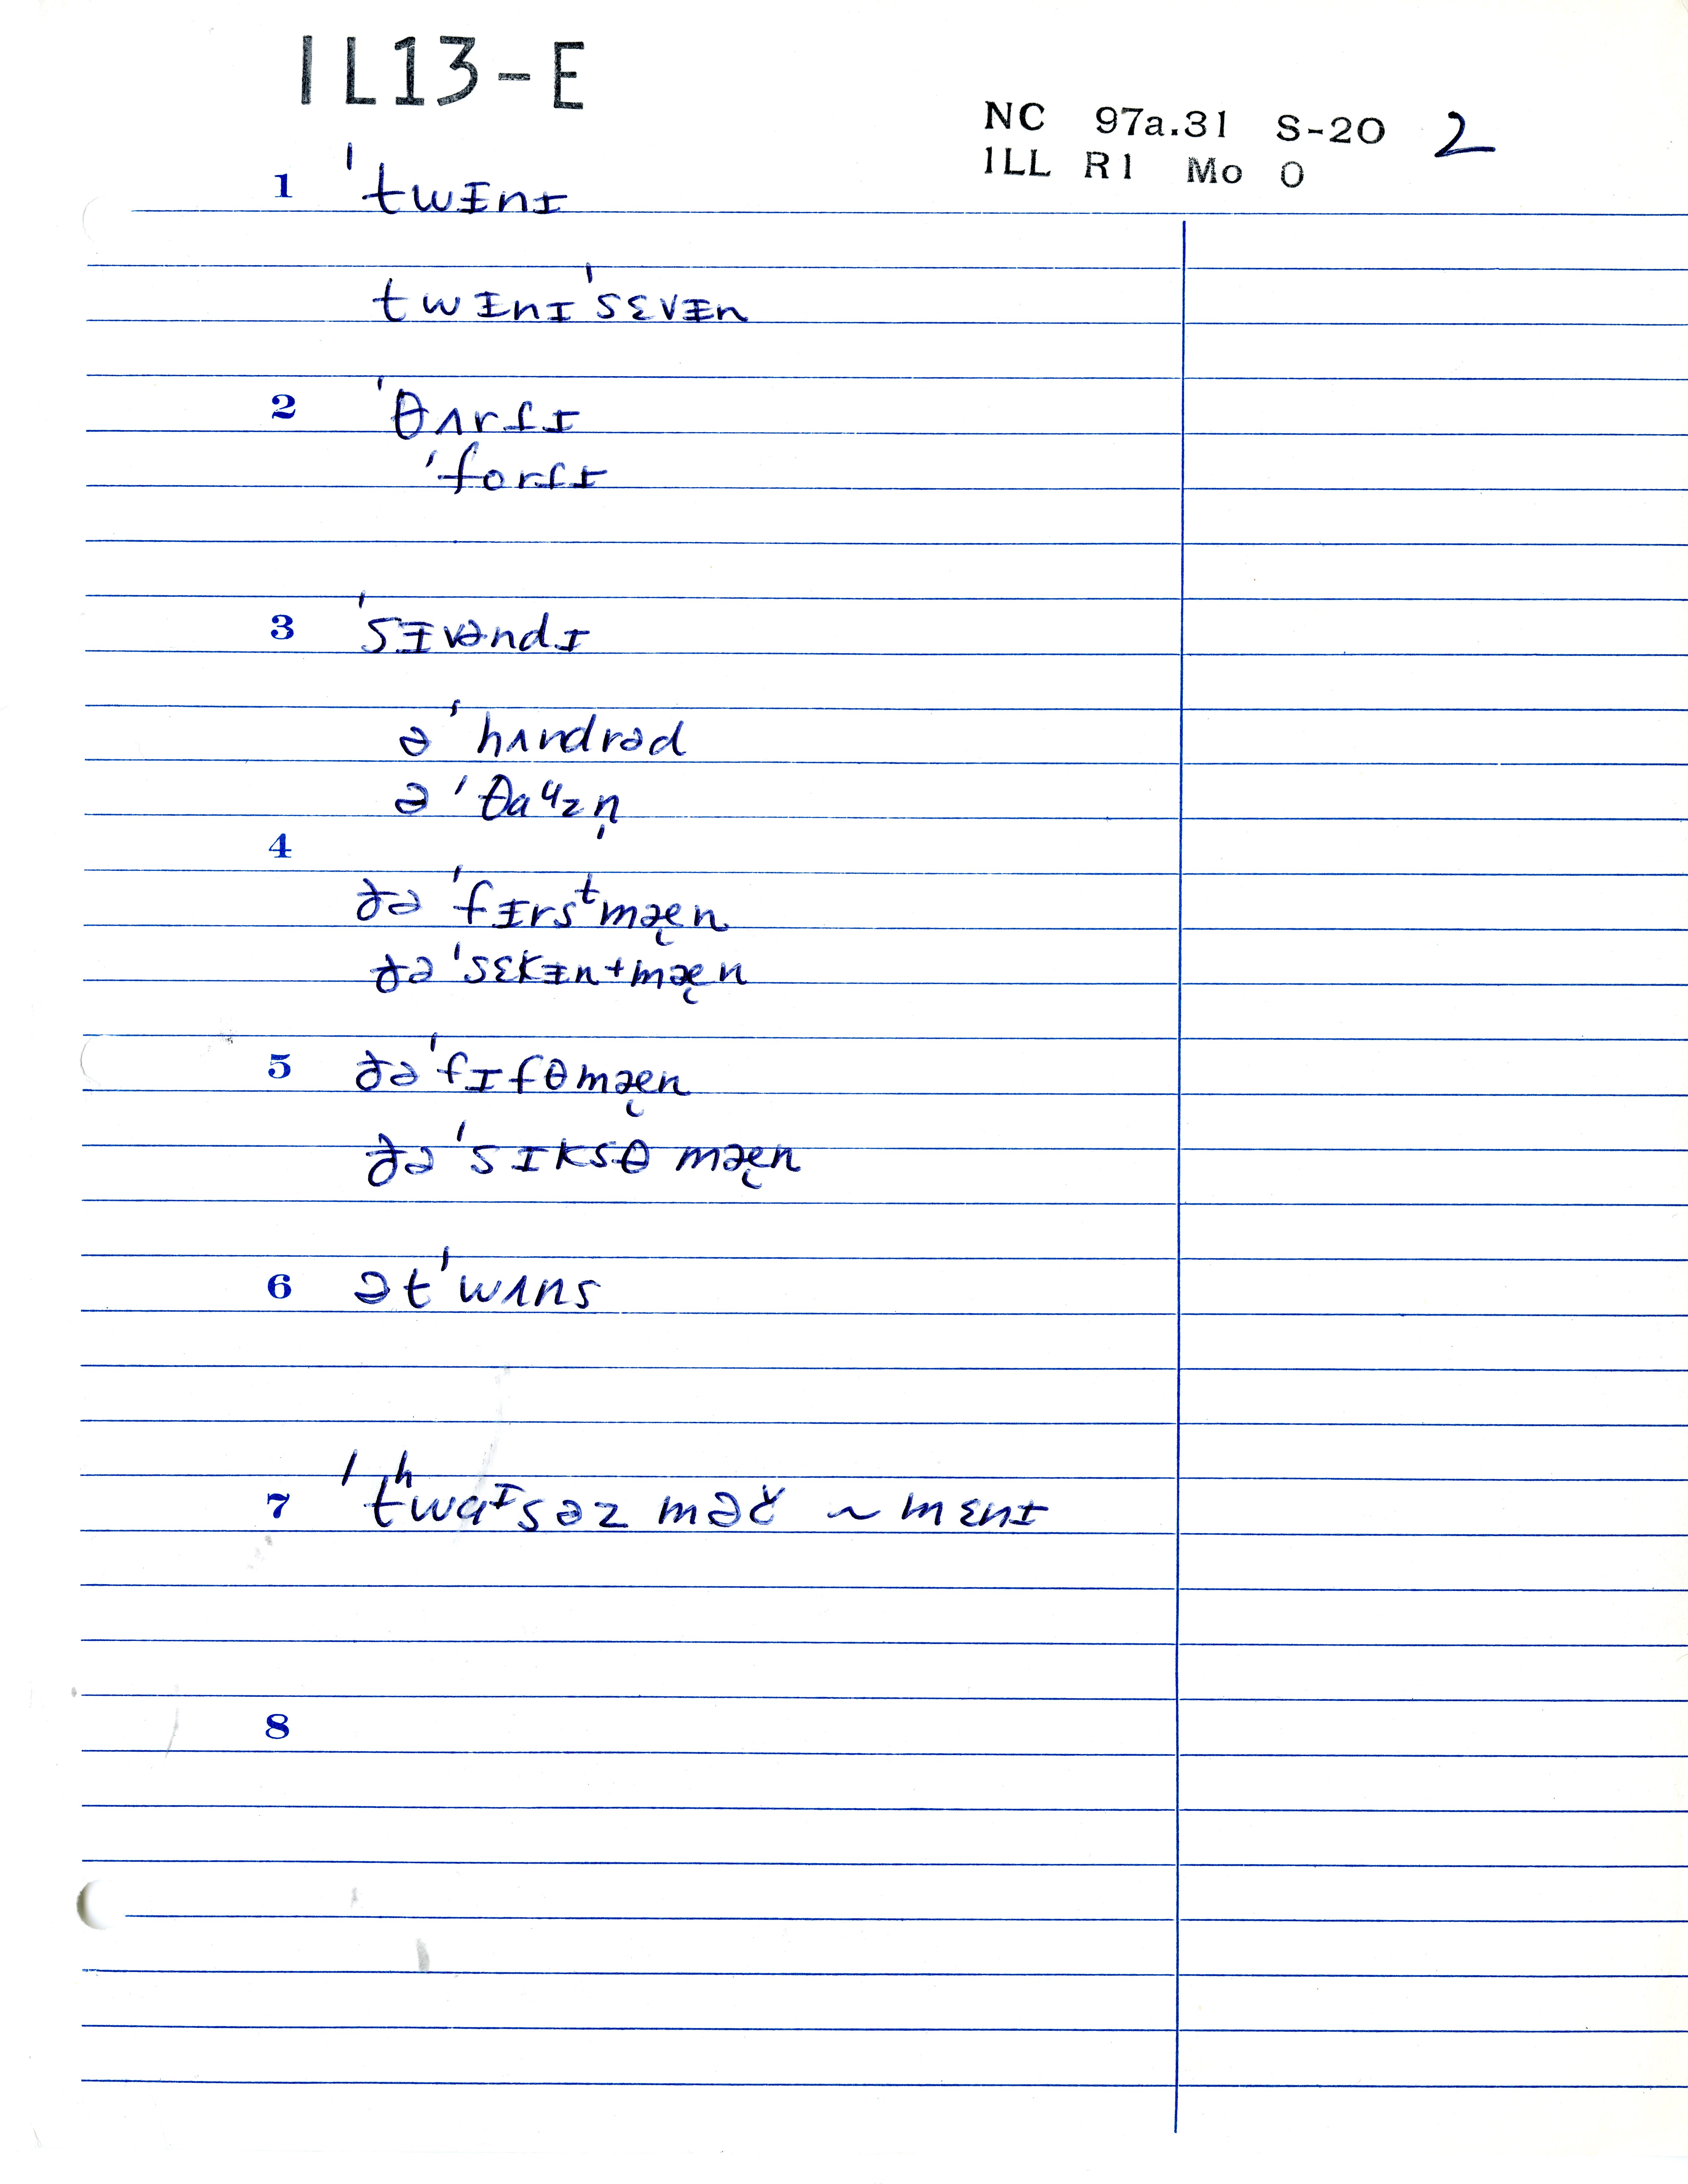 IL13-E
NC 97a.31 S-20 2
ILL R1 Mo O
1 ˈtwᵻnɪ
twᵻnɪˈsɛvᵻn
2 ˈθʌrɾɪ
ˈforɾɪ
3 ˈsᵻvəndɪ
əˈhʌndrəd
əˈθaᶣzn̩
4
ðəˈfᵻrsᵗmæ̨n
ðəˈsɛkᵻntmæ̨n
5 ðəˈfɪfθmæ̨n
ðəˈsɪksθ mæ̨n
6 ətˈwʌns
7 ˈtʰwaᶦsəz məč ~ mɛnɪ
8